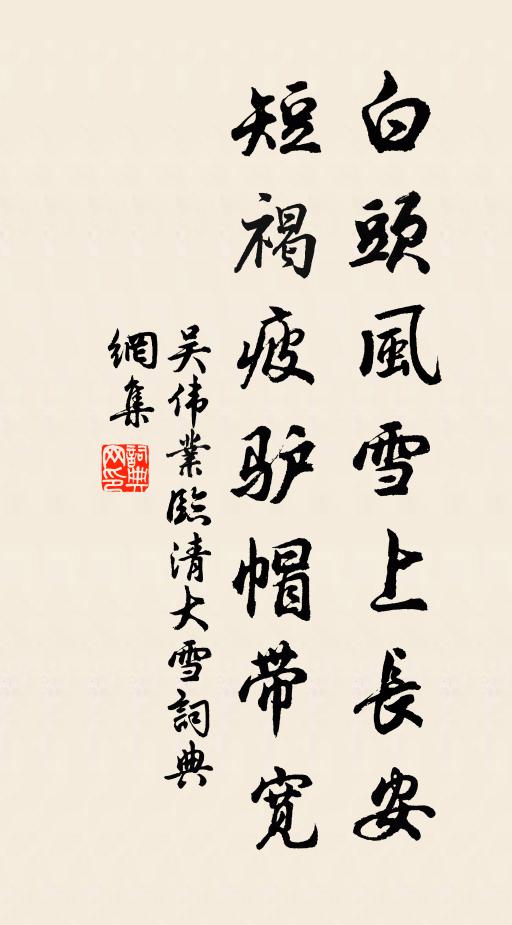 白頭風雪上長安
短褐疲驴帽带寬
吴伟業臨清大雪詞典
網集
詞典網印